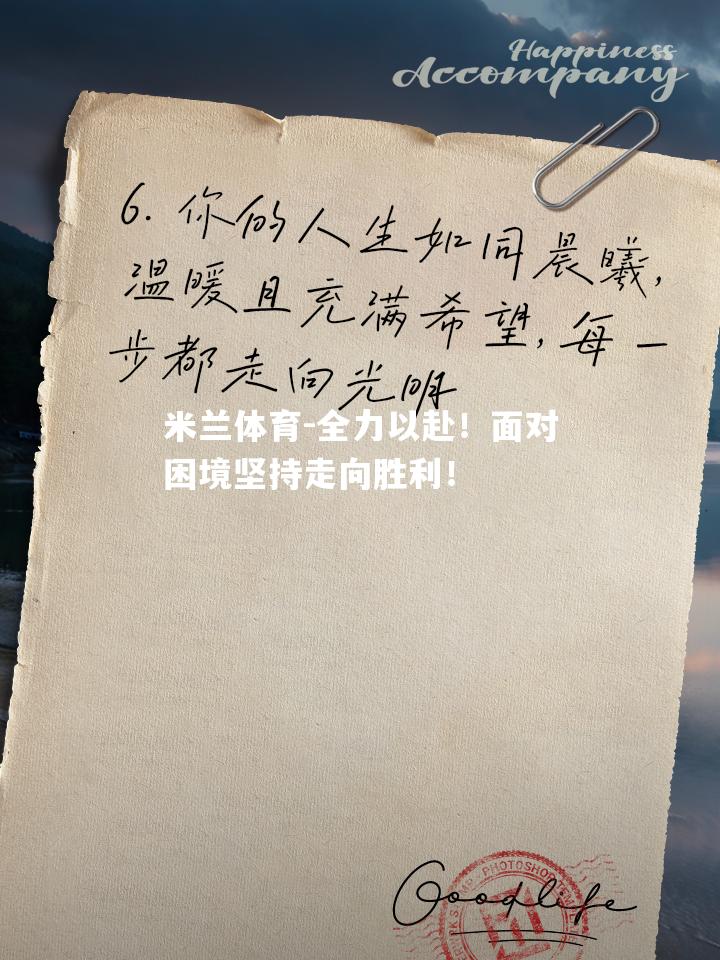 Happiness
Accompany
6. 你的人生如同晨曦,
温暖且充满希望, 每一
步都走向光明
米兰体育-全力以赴！面对
困境坚持走向胜利！
Goodlife
PHOTOSHOP